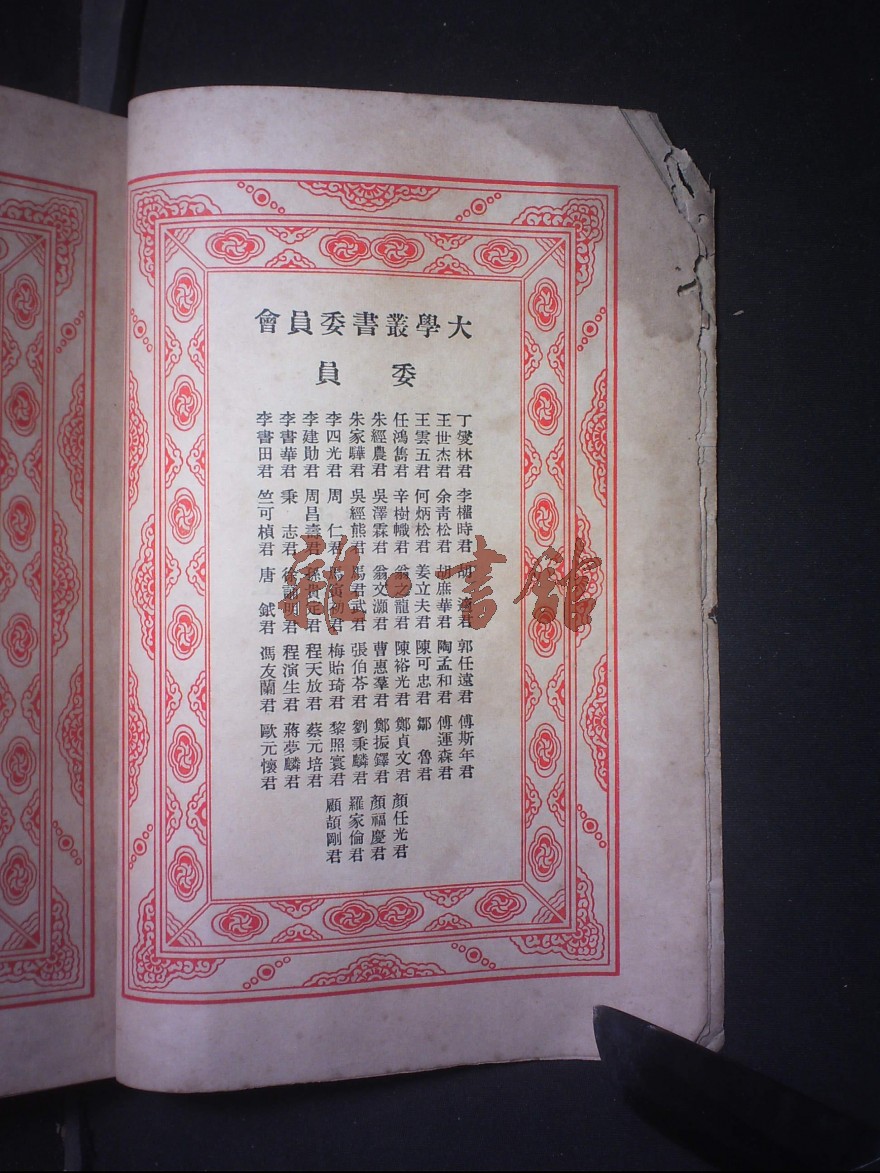 大學叢書委員會
委員
丁燮林君
王世杰君
王雲五君
任鴻雋君
朱經農君
朱家驊君
李四光君
李建勛君
李書華君
李書田君
李權時君
余青松君
何炳松君
辛樹幟君
吳澤霖君
吳經熊君
周仁君
周昌壽君
秉志君
竺可楨君
胡適君
胡庶華君
姜立夫君
翁之龍君
翁文灝君
馬君武君
馬寅初君
孫貴定君
徐誦明君
唐鉞君
郭任遠君
陶孟和君
陳可忠君
陳裕光君
曹惠羣君
張伯苓君
梅貽琦君
程天放君
程演生君
馮友蘭君
傅斯年君
傅運森君
鄒魯君
鄭貞文君
鄭振鐸君
劉秉麟君
黎照寰君
蔡元培君
蔣夢麟君
歐元懷君
顏任光君
顏福慶君
羅家倫君
顧頡剛君
雜·書館